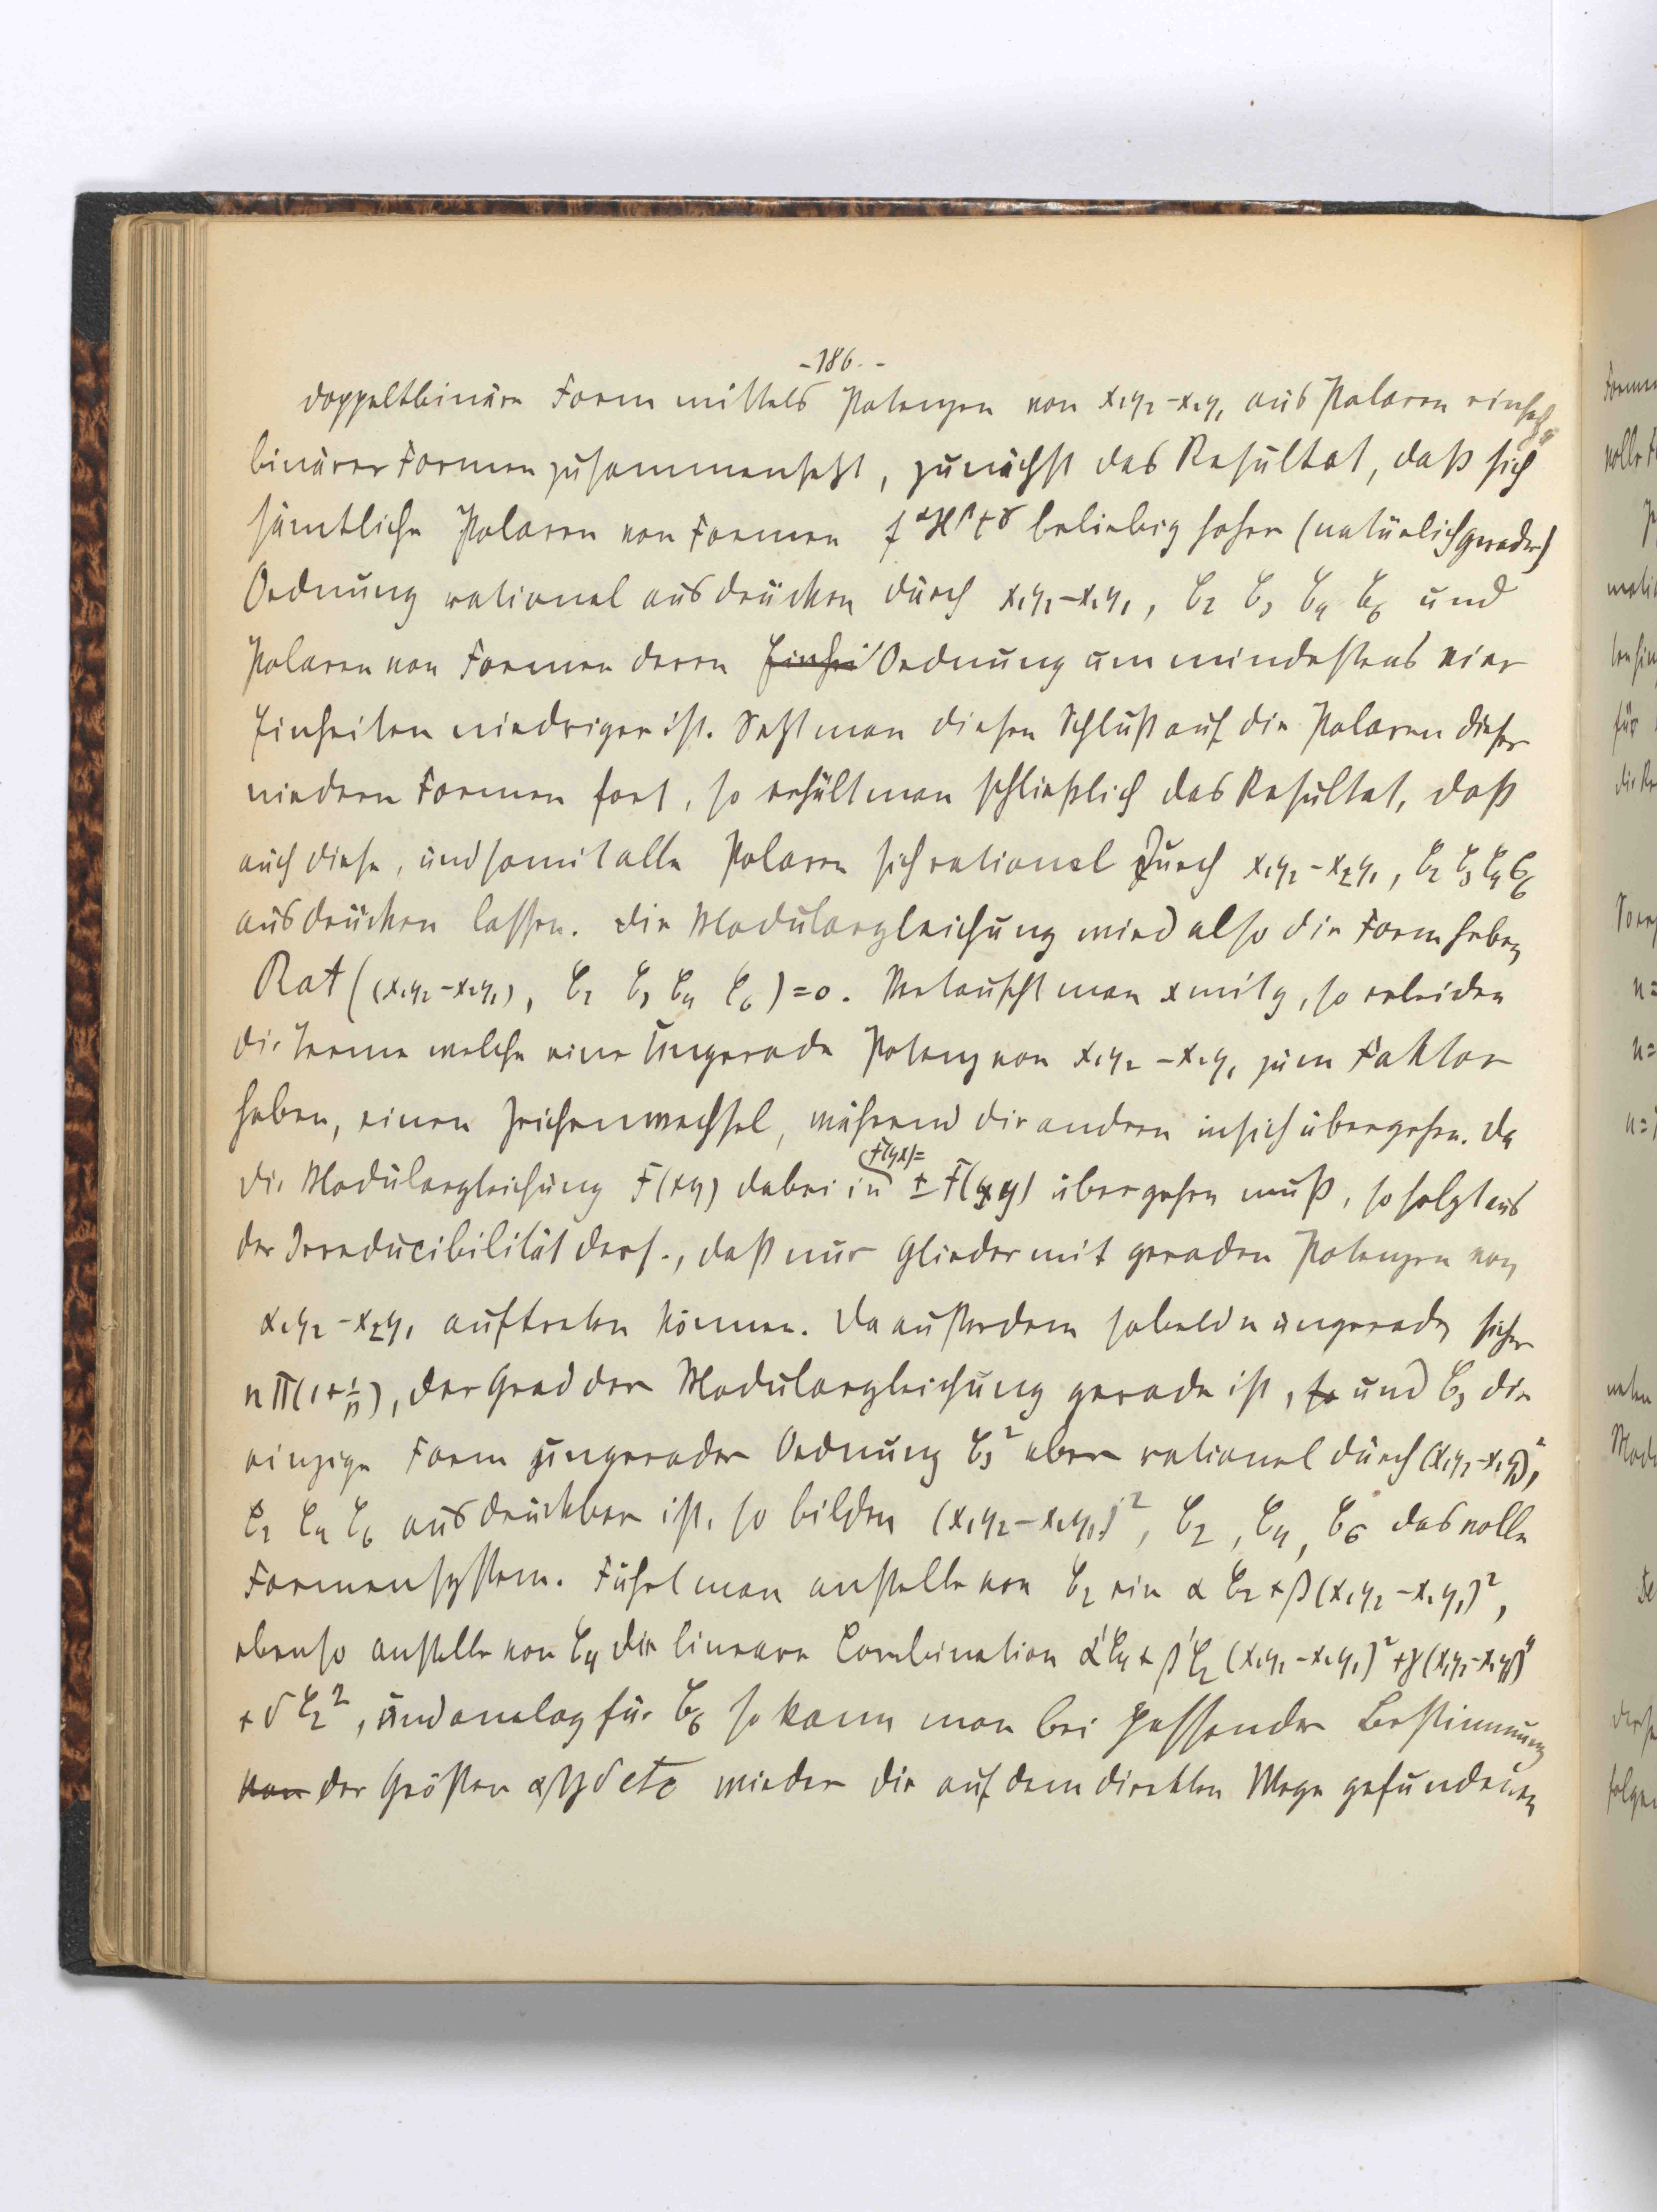 -186.-
doppeltbinäre Form mittels Potenzen von x₁y₂-x₂y₁ aus Polaren einfach
binärer Formen zusammensetzt, zunächst das Resultat, daß sich
sämtliche Polaren von Formen f^α H^β t^γ beliebig hoher (natürlich gerader)
Ordnung rational ausdrücken durch x₁y₂-x₂y₁, C₂ C₃ C₄ C₆ und
Polaren von Formen deren Einhei Ordnung um mindestens vier
Einheiten niedriger ist. Setzt man diesen Schluß auf die Polaren dieser
niedern Formen fort, so erhält man schließlich das Resultat, daß
auch diese, und somit alle Polaren sich rational durch x₁y₂-x₂y₁, C₂ C₃ C₄ C₆
ausdrücken lassen. Die Modulargleichung wird also die Form haben
Rat((x₁y₂-x₂y₁), C₂ C₃ C₄ C₆)=0. Vertauscht man x mit y, so erleiden
die Terme welche eine ungerade Potenz von x₁y₂-x₂y₁ zum Faktor
haben, einen Zeichenwechsel, während die andern in sich übergehen. Da
die Modulargleichung F(xy) dabei in F(yx)= ± F(xy) übergehen muß, so folgt aus
der Irreducibilität ders., daß nur Glieder mit geraden Potenzen von
x₁y₂-x₂y₁ auftreten können. Da außerdem sobald n ungerade sicher
nΠ(1+1/p), der Grad der Modulargleichung gerade ist, so und C₃ die
einzige Form ungerader Ordnung C₃² aber rational durch (x₁y₂-x₂y₁)²,
C₂ C₄ C₆ ausdrückbar ist, so bilden (x₁y₂-x₂y₁)², C₂, C₄, C₆ das volle
Formensystem. Führt man anstelle von C₂ ein α C₂+β(x₁y₂-x₂y₁)²,
ebenso anstelle von C₄ die lineare Combination α'C₄+β'C₂(x₁y₂-x₂y₁)²+γ(x₁y₂-x₂y₁)⁴
+δC₂², und analog für C₆ so kann man bei passender Bestimmung
von der Größen αβγδ etc wieder die auf dem direkten Wege gefundenen